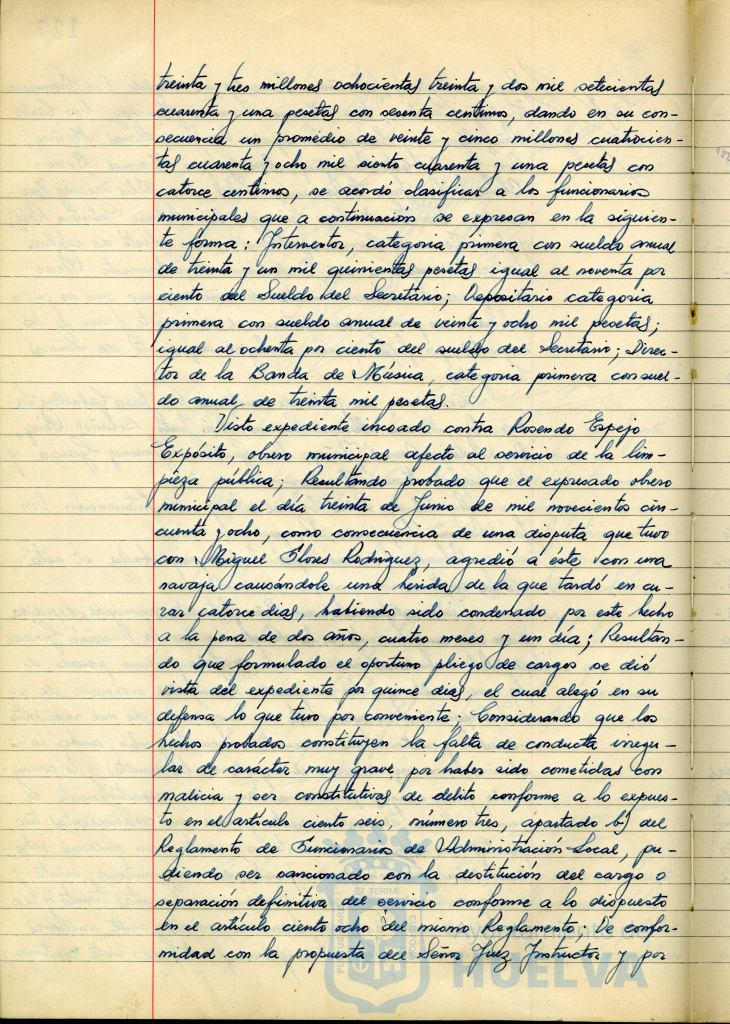 treinta y tres millones ochocientas treinta y dos mil setecientas
cuarenta y una pesetas con sesenta centimos, dando en su con-
secuencia un promedio de veinte y cinco millones cuatrocien-
tas cuarenta y ocho mil siento cuarenta y una pesetas con
catorce centimos, se acordó clasificar a los funcionarios
municipales que a continuación se expresan en la siguien-
te forma: Interventor, categoria primera con sueldo anual
de treinta y un mil quinientas pesetas igual al noventa por
ciento del Sueldo del Secretário; Depositario categoria
primera con sueldo anual de veinte y ocho mil pesetas;
igual al ochenta por ciento del sueldo del Secretario; Direc-
tor de la Banda de Música, categoria primera con suel-
do anual de treinta mil pesetas.
Visto expediente incoado contra Rosendo Espejo
Expósito, obrero municipal afecto al servicio de la lim-
pieza pública; Resultando probado que el expresado obrero
municipal el día treinta de Junio de mil novecientos cin-
cuenta y ocho, como consecuencia de una disputa que tuvo
con Miguel Flores Rodríguez, agredió a éste con una
navaja causándole una herida de la que tardó en cu-
rar catorce dias, habiendo sido condenado por este hecho
a la pena de dos años, cuatro meses y un día; Resultan-
do que formulado el oportuno pliego de cargos se dió
vista del expediente por quince dias, el cual alegó en su
defensa lo que tuvo por conveniente; Considerando que los
hechos probados constituyen la falta de conducta irregu-
lar de carácter muy grave por haber sido cometidas con
malicia y ser constitutivas de delito conforme a lo expues-
to en el artículo ciento seis, número tres, apartado b) del
Reglamento de Funcionarios de Administración Local, pu-
diendo ser sancionado con la destitución del cargo o
separación definitiva del servicio conforme a lo dispuesto
en el artículo ciento ocho del mismo Reglamento; De confor-
midad con la propuesta del Señor Juez Instructor y por
HUELVA